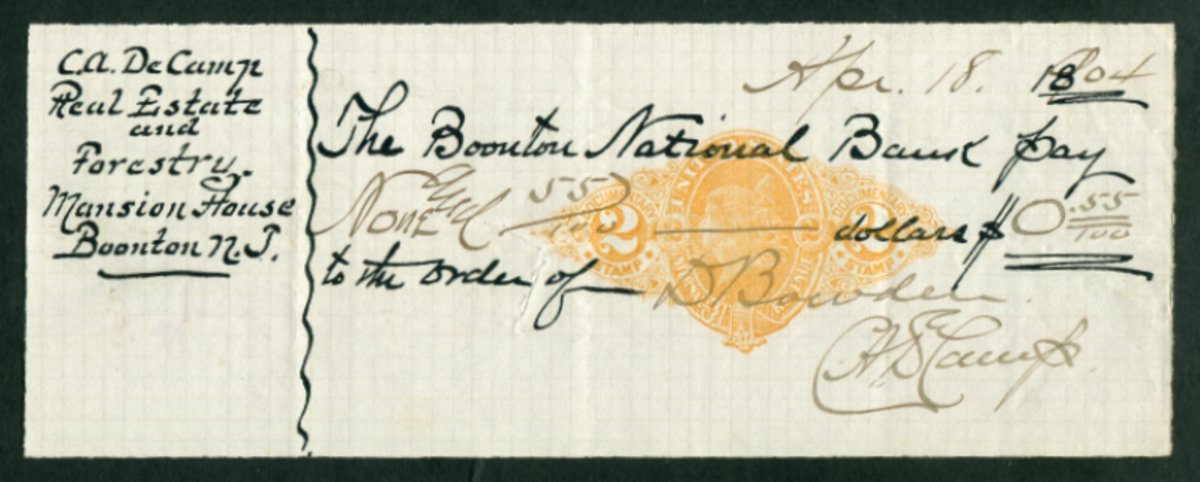 C.A. De Camp
Real Estate
and
Forestry.
Mansion House
Boonton N.J.
Apr. 18. 1904
The Boonton National Bank pay
None and 55/100 dollars $0.55/100
to the order of D Bowden
C.A. De Camp
UNITED STATES
2 2
STAMP STAMP